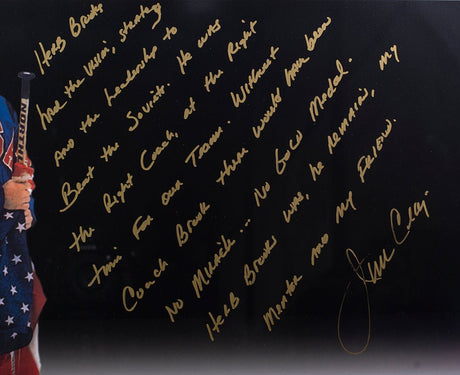 Herb Brooks
had the vision, strategy
and the leadership to
Beat the Soviets. He was
the Right Coach, at the Right
time for our Team. Without
Coach Brooks there would have been
No Miracle... No Gold Medal.
Herb Brooks was, he remains, my
Mentor and my Friend.
Jim Craig